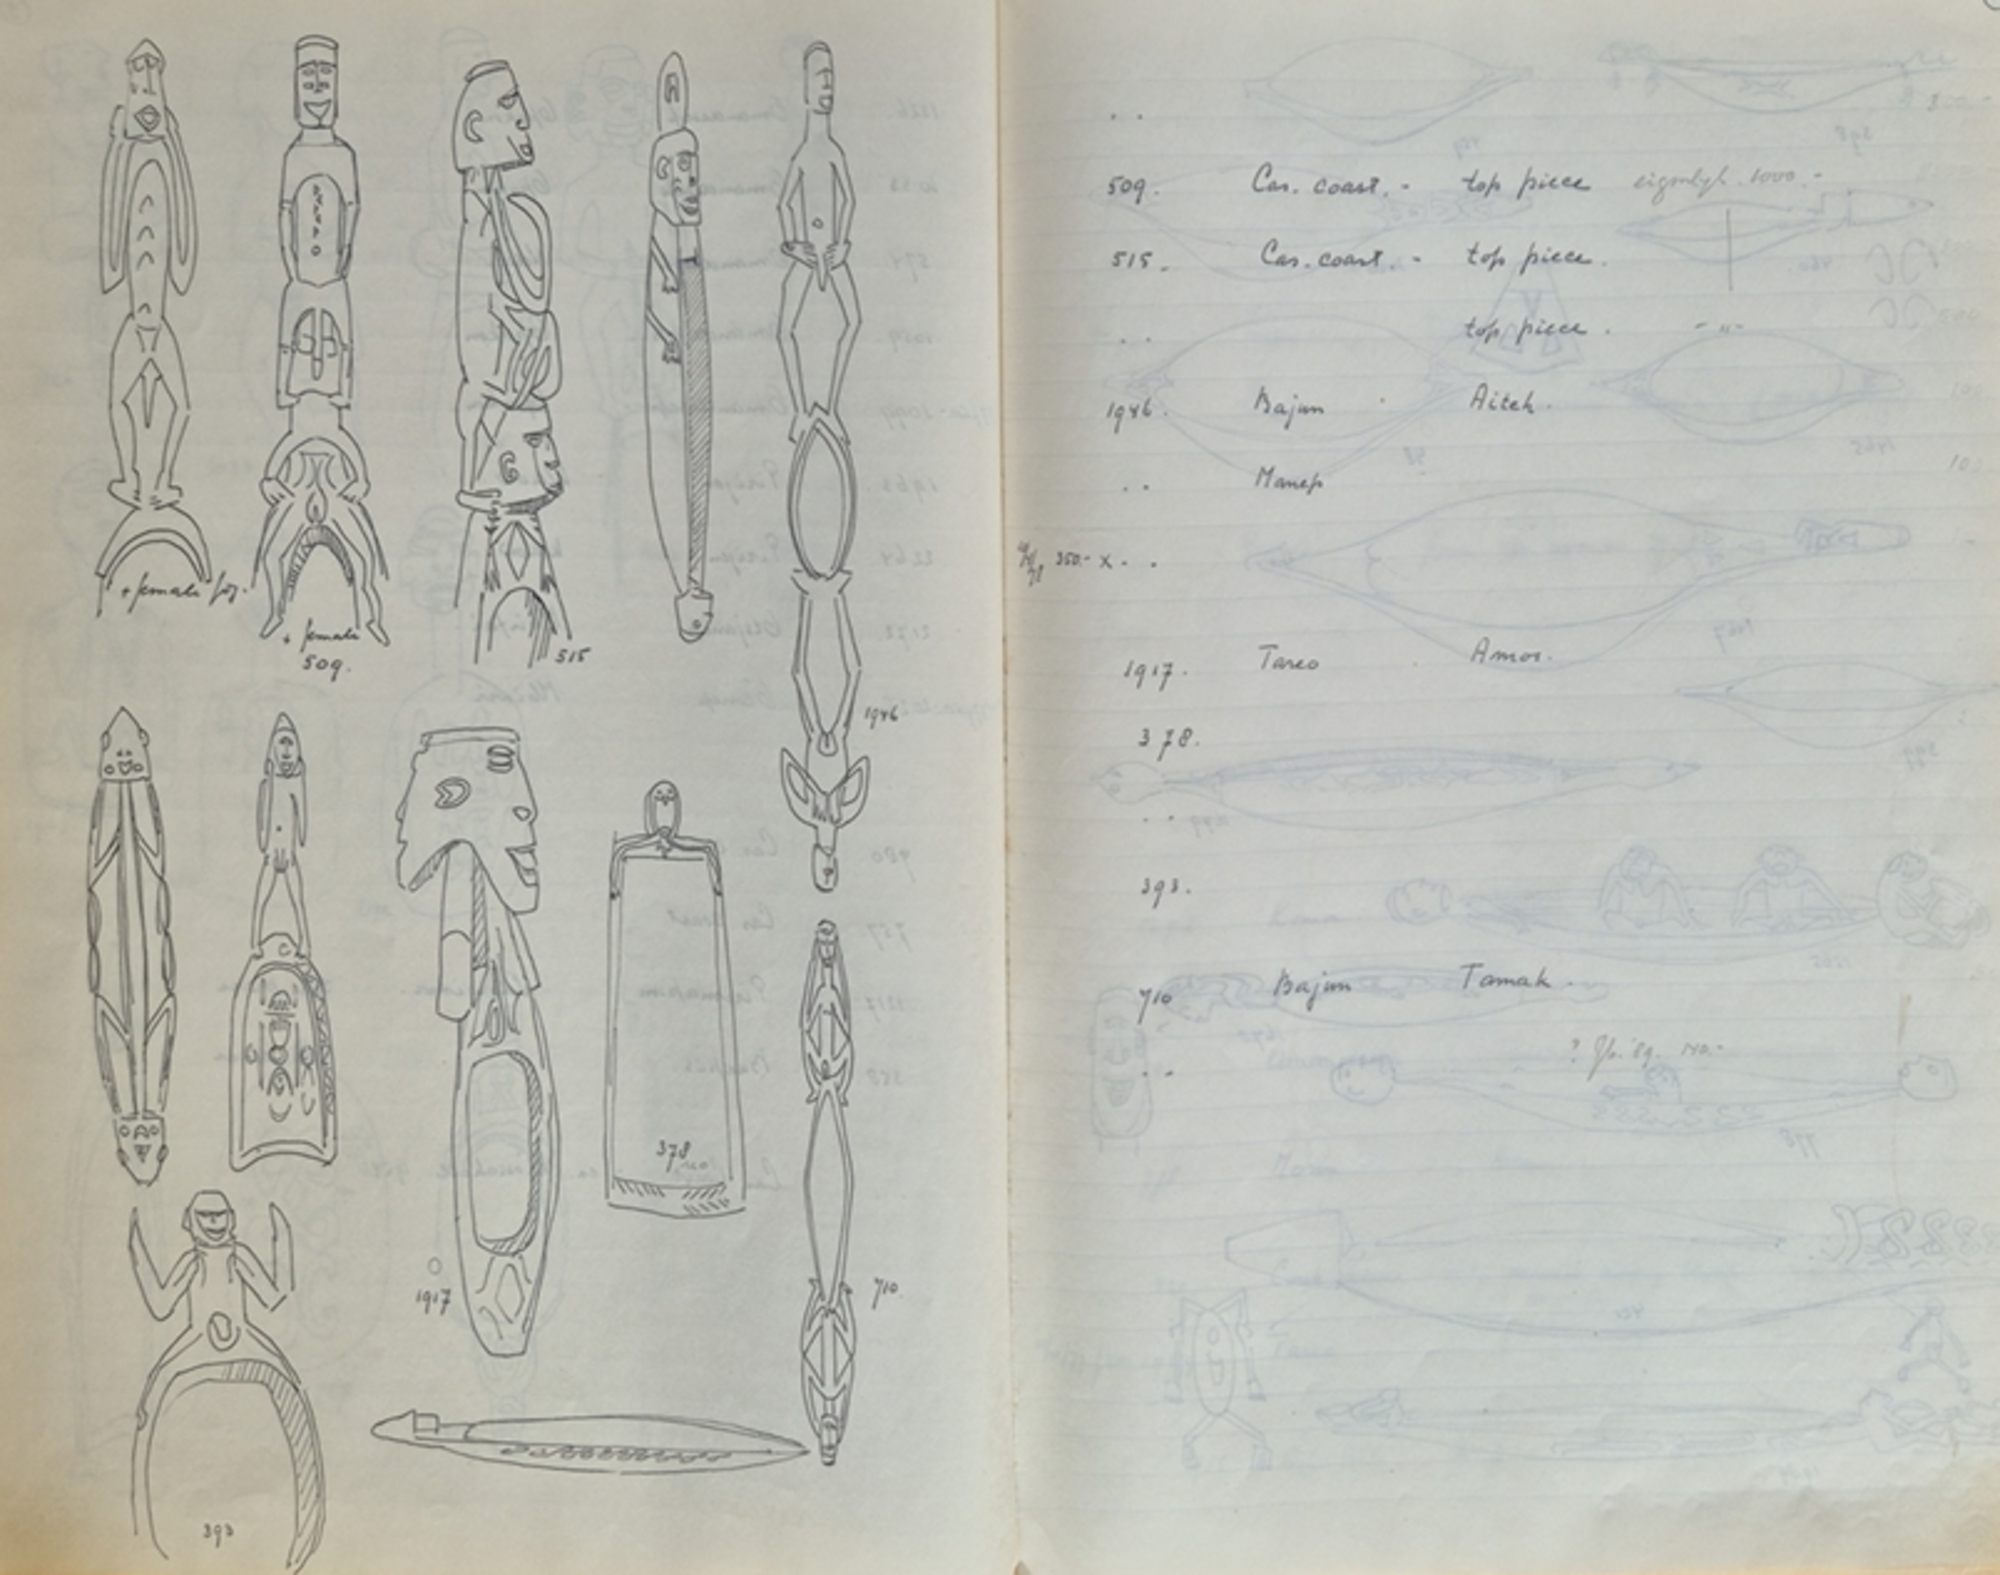 + female fig.
+ female
509.
515
1946
378
1917
710.
393
. .
509. Cas. coast. - top piece
515. Cas. coast. - top piece.
. . top piece. - " -
1946. Bajun Aitek.
. . Manep
350.- x - .
1917. Tareo Amos.
378.
. .
393.
710 Bajun Tamak.
. .